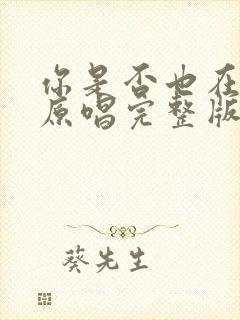 你是否也在
原唱完整版
葵先生